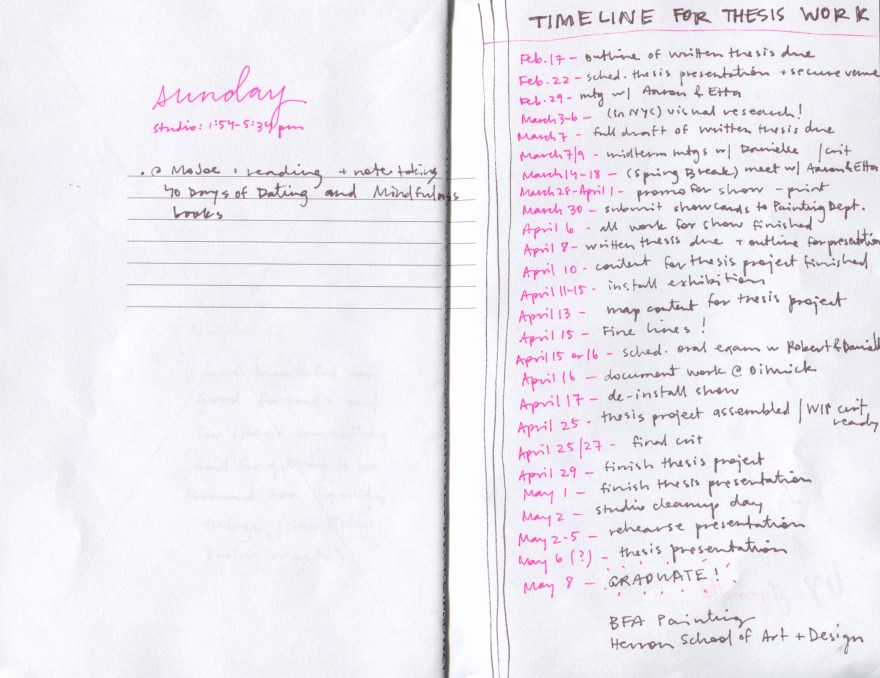 sunday
studio: 1:54-5:34 pm
• @ MoJoe : reading + note taking
40 Days of Dating and Mindfulness
books
TIMELINE FOR THESIS WORK
Feb. 17 - outline of written thesis due
Feb. 22 - sched. thesis presentation + secure venue
Feb. 29 - mtg w/ Aaron & Etta
March 3-6 - (in NYC) visual research!
March 7 - full draft of written thesis due
March 7/9 - midterm mtgs w/ Danielle / crit
March 14-18 - (Spring Break) meet w/ Aaron & Etta
March 28-April 1 - promo for show - print
March 30 - submit showcards to Painting Dept.
April 6 - all work for show finished
April 8 - written thesis due + outline for presentation
April 10 - content for thesis project finished
April 11-15 - install exhibition
April 13 - map content for thesis project
April 15 - Fine Lines!
April 15 or 16 - sched. oral exam w Robert & Danielle
April 16 - document work @ Dimnick
April 17 - de-install show
April 25 - thesis project assembled / WIP crit ready
April 25/27 - final crit
April 29 - finish thesis project
May 1 - finish thesis presentation
May 2 - studio cleanup day
May 2-5 - rehearse presentation
May 6 (?) - thesis presentation
May 8 - GRADUATE!
BFA Painting
Herron School of Art + Design